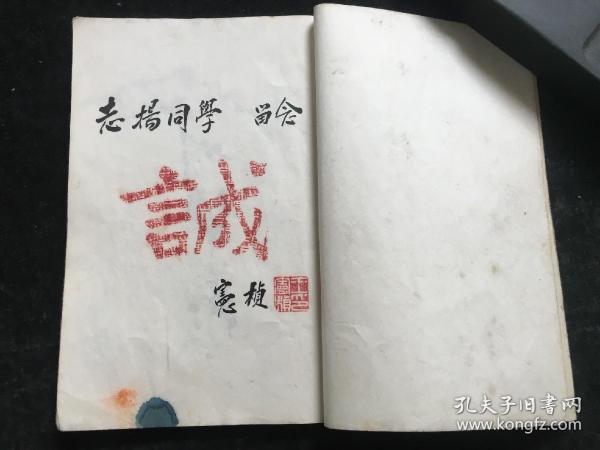 志揚同學 留念
誠
憲楨
王憲楨印
孔夫子旧书网
www.kongfz.com